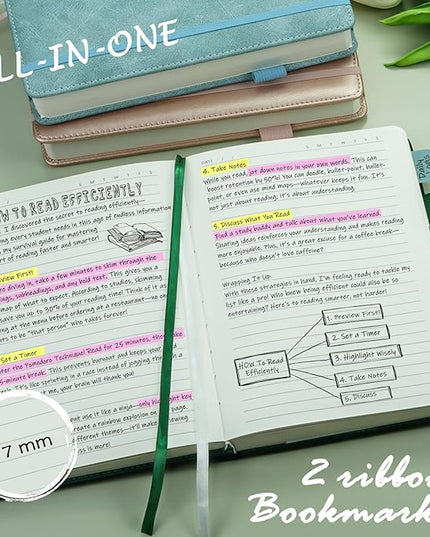 LL-IN-ONE
HOW TO READ EFFICIENTLY
I discovered the secret to reading efficiently
every student needs in this age of endless information
my survival guide for powering
of reading faster and smarter!
review First!
diving in, take a few minutes to skim through the
headings, subheadings, and any bold text. This gives you a
map of what to expect. According to studies, skimming
save you up to 30% of your reading time! Think of it as
at the menu before ordering at a restaurant—no one
to be "that person" who takes forever!
Set a Timer
the Pomodoro Technique! Read for 25 minutes, then take
5-minute break. This prevents burnout and keeps your
It's like sprinting in a race instead of jogging through a
me, your brain will thank you!
but use it like a ninja—only highlight key
create a rainbow explosion on page.
different themes—it'll make
17 mm
DATE
S M T W T F S
4. Take Notes
While you read, jot down notes in your own words. This can
boost retention by 50%! You can doodle, bullet-point, bullet-
point, or even use mind maps—whatever keeps it fun. It's
not just about reading; it's about understanding.
5. Discuss What You Read
Find a study buddy and talk about what you've learned.
Sharing ideas reinforces your understanding and makes reading
more enjoyable. Plus, it's a great excuse for a coffee break—
because who doesn't love caffeine?
Wrapping It Up
with these strategies in hand, I'm feeling ready to tackle my
list like a pro! Who knew being efficient could also be so
entertaining? Here's to reading smarter, not harder!
HOW To Read
Efficiently
1. Preview First!
2. Set a Timer
3. Highlight Wisely
4. Take Notes
5. Discuss
2 ribbo
Bookmark